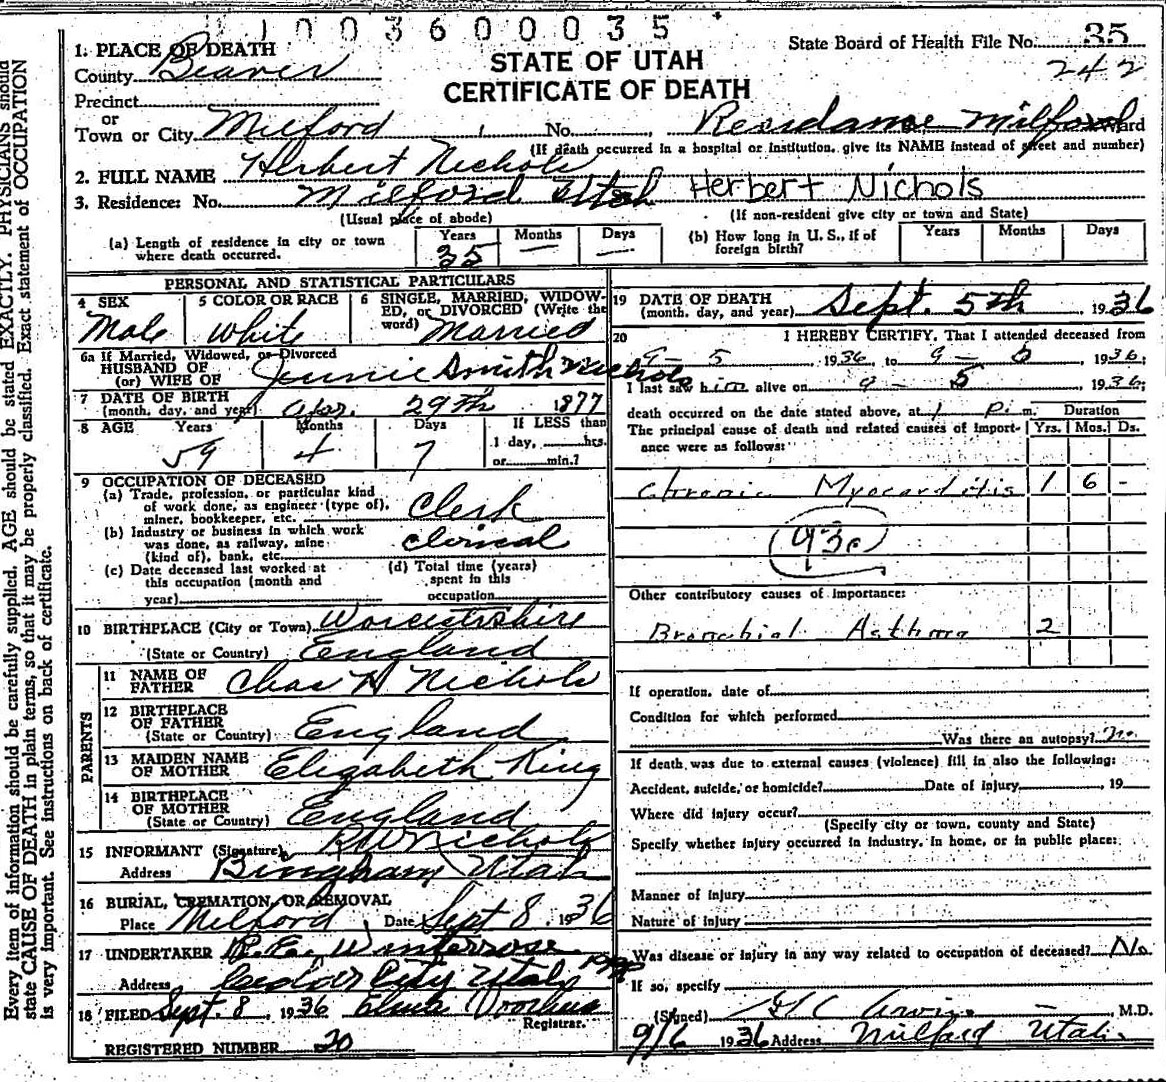 1003600035
State Board of Health File No. 35
242
STATE OF UTAH
CERTIFICATE OF DEATH
1. PLACE OF DEATH
County Beaver
Precinct
or
Town or City Milford No. Residanse Milford Ward
(If death occurred in a hospital or institution, give its NAME instead of street and number)
2. FULL NAME Herbert Nichols
3. Residence: No. Milford Utah Herbert Nichols
(Usual place of abode) (If non-resident give city or town and State)
(a) Length of residence in city or town where death occurred. Years 35 Months — Days —
(b) How long in U. S., if of foreign birth? Years Months Days
PERSONAL AND STATISTICAL PARTICULARS
4 SEX Male
5 COLOR OR RACE White
6 SINGLE, MARRIED, WIDOWED, or DIVORCED (Write the word) Married
6a If Married, Widowed, or Divorced
HUSBAND OF
(or) WIFE OF Jennie Smith Nichols
7 DATE OF BIRTH
(month, day, and year) Apr. 29th 1877
8 AGE Years 59 Months 4 Days 7 If LESS than
1 day, hrs.
or min.?
9 OCCUPATION OF DECEASED
(a) Trade, profession, or particular kind
of work done, as engineer (type of),
miner, bookkeeper, etc. Clerk
(b) Industry or business in which work
was done, as railway, mine
(kind of), bank, etc. Clerical
(c) Date deceased last worked at
this occupation (month and
year)
(d) Total time (years)
spent in this
occupation
10 BIRTHPLACE (City or Town) Worcestershire
(State or Country) England
PARENTS
11 NAME OF
FATHER Chas H Nichols
12 BIRTHPLACE
OF FATHER
(State or Country) England
13 MAIDEN NAME
OF MOTHER Elizabeth King
14 BIRTHPLACE
OF MOTHER
(State or Country) England
15 INFORMANT (Signature) R W Nichols
Address Bingham Utah
16 BURIAL, CREMATION, OR REMOVAL
Place Milford Date Sept 8 1936
17 UNDERTAKER
Address Cedar City Utah
18 FILED Sept. 8, 1936 Voorhees
Registrar.
REGISTERED NUMBER 20
19 DATE OF DEATH
(month, day, and year) Sept. 5th, 1936
20 I HEREBY CERTIFY, That I attended deceased from
9 - 5, 1936, to 9 - 1936;
I last saw him alive on 9 - 5, 1936;
death occurred on the date stated above, at 1 p. m. Duration
The principal cause of death and related causes of importance were as follows: Yrs. Mos. Ds.
Chronic Myocarditis 1 6 -
93c
Other contributory causes of importance:
Bronchial Asthma 2
If operation, date of
Condition for which performed
Was there an autopsy? No
If death was due to external causes (violence) fill in also the following:
Accident, suicide, or homicide? Date of injury , 19
Where did injury occur?
(Specify city or town, county and State)
Specify whether injury occurred in industry, in home, or in public place:
Manner of injury
Nature of injury
Was disease or injury in any way related to occupation of deceased? No.
If so, specify
(Signed) , M.D.
9/6 1936 Address Milford Utah
Every item of information should be carefully supplied. AGE should be stated EXACTLY. PHYSICIANS should
state CAUSE OF DEATH in plain terms, so that it may be properly classified. Exact statement of OCCUPATION
is very important. See instructions on back of certificate.